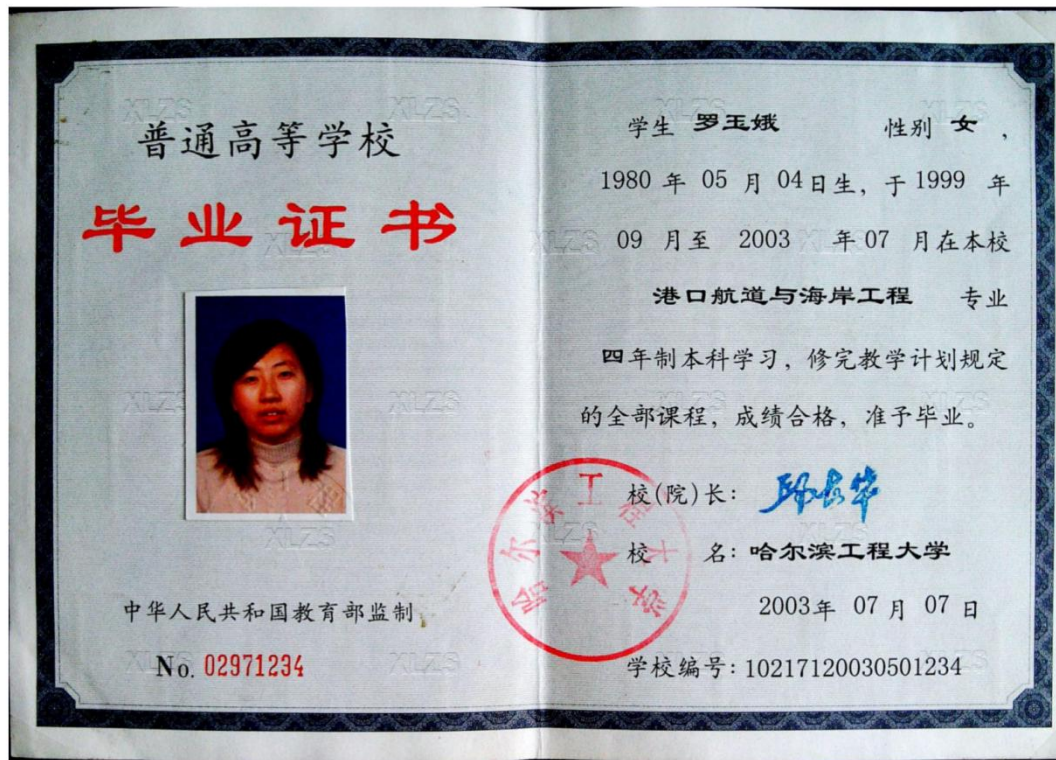 普通高等学校
毕业证书
中华人民共和国教育部监制
No. 02971234
学生 罗玉娥 性别 女，
1980 年 05 月 04日生，于1999 年
09 月至 2003 年07 月在本校
港口航道与海岸工程 专业
四年制本科学习，修完教学计划规定
的全部课程，成绩合格，准予毕业。
校(院)长：
校 名：哈尔滨工程大学
2003年 07 月 07 日
学校编号：10217120030501234
哈尔滨工程大学
XLZS